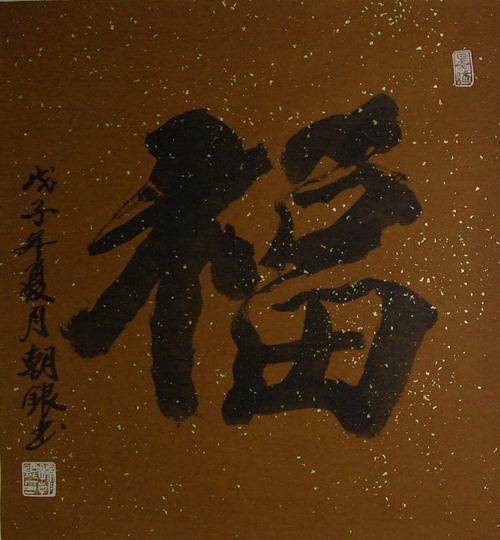 福
戊子年夏月朝銀书